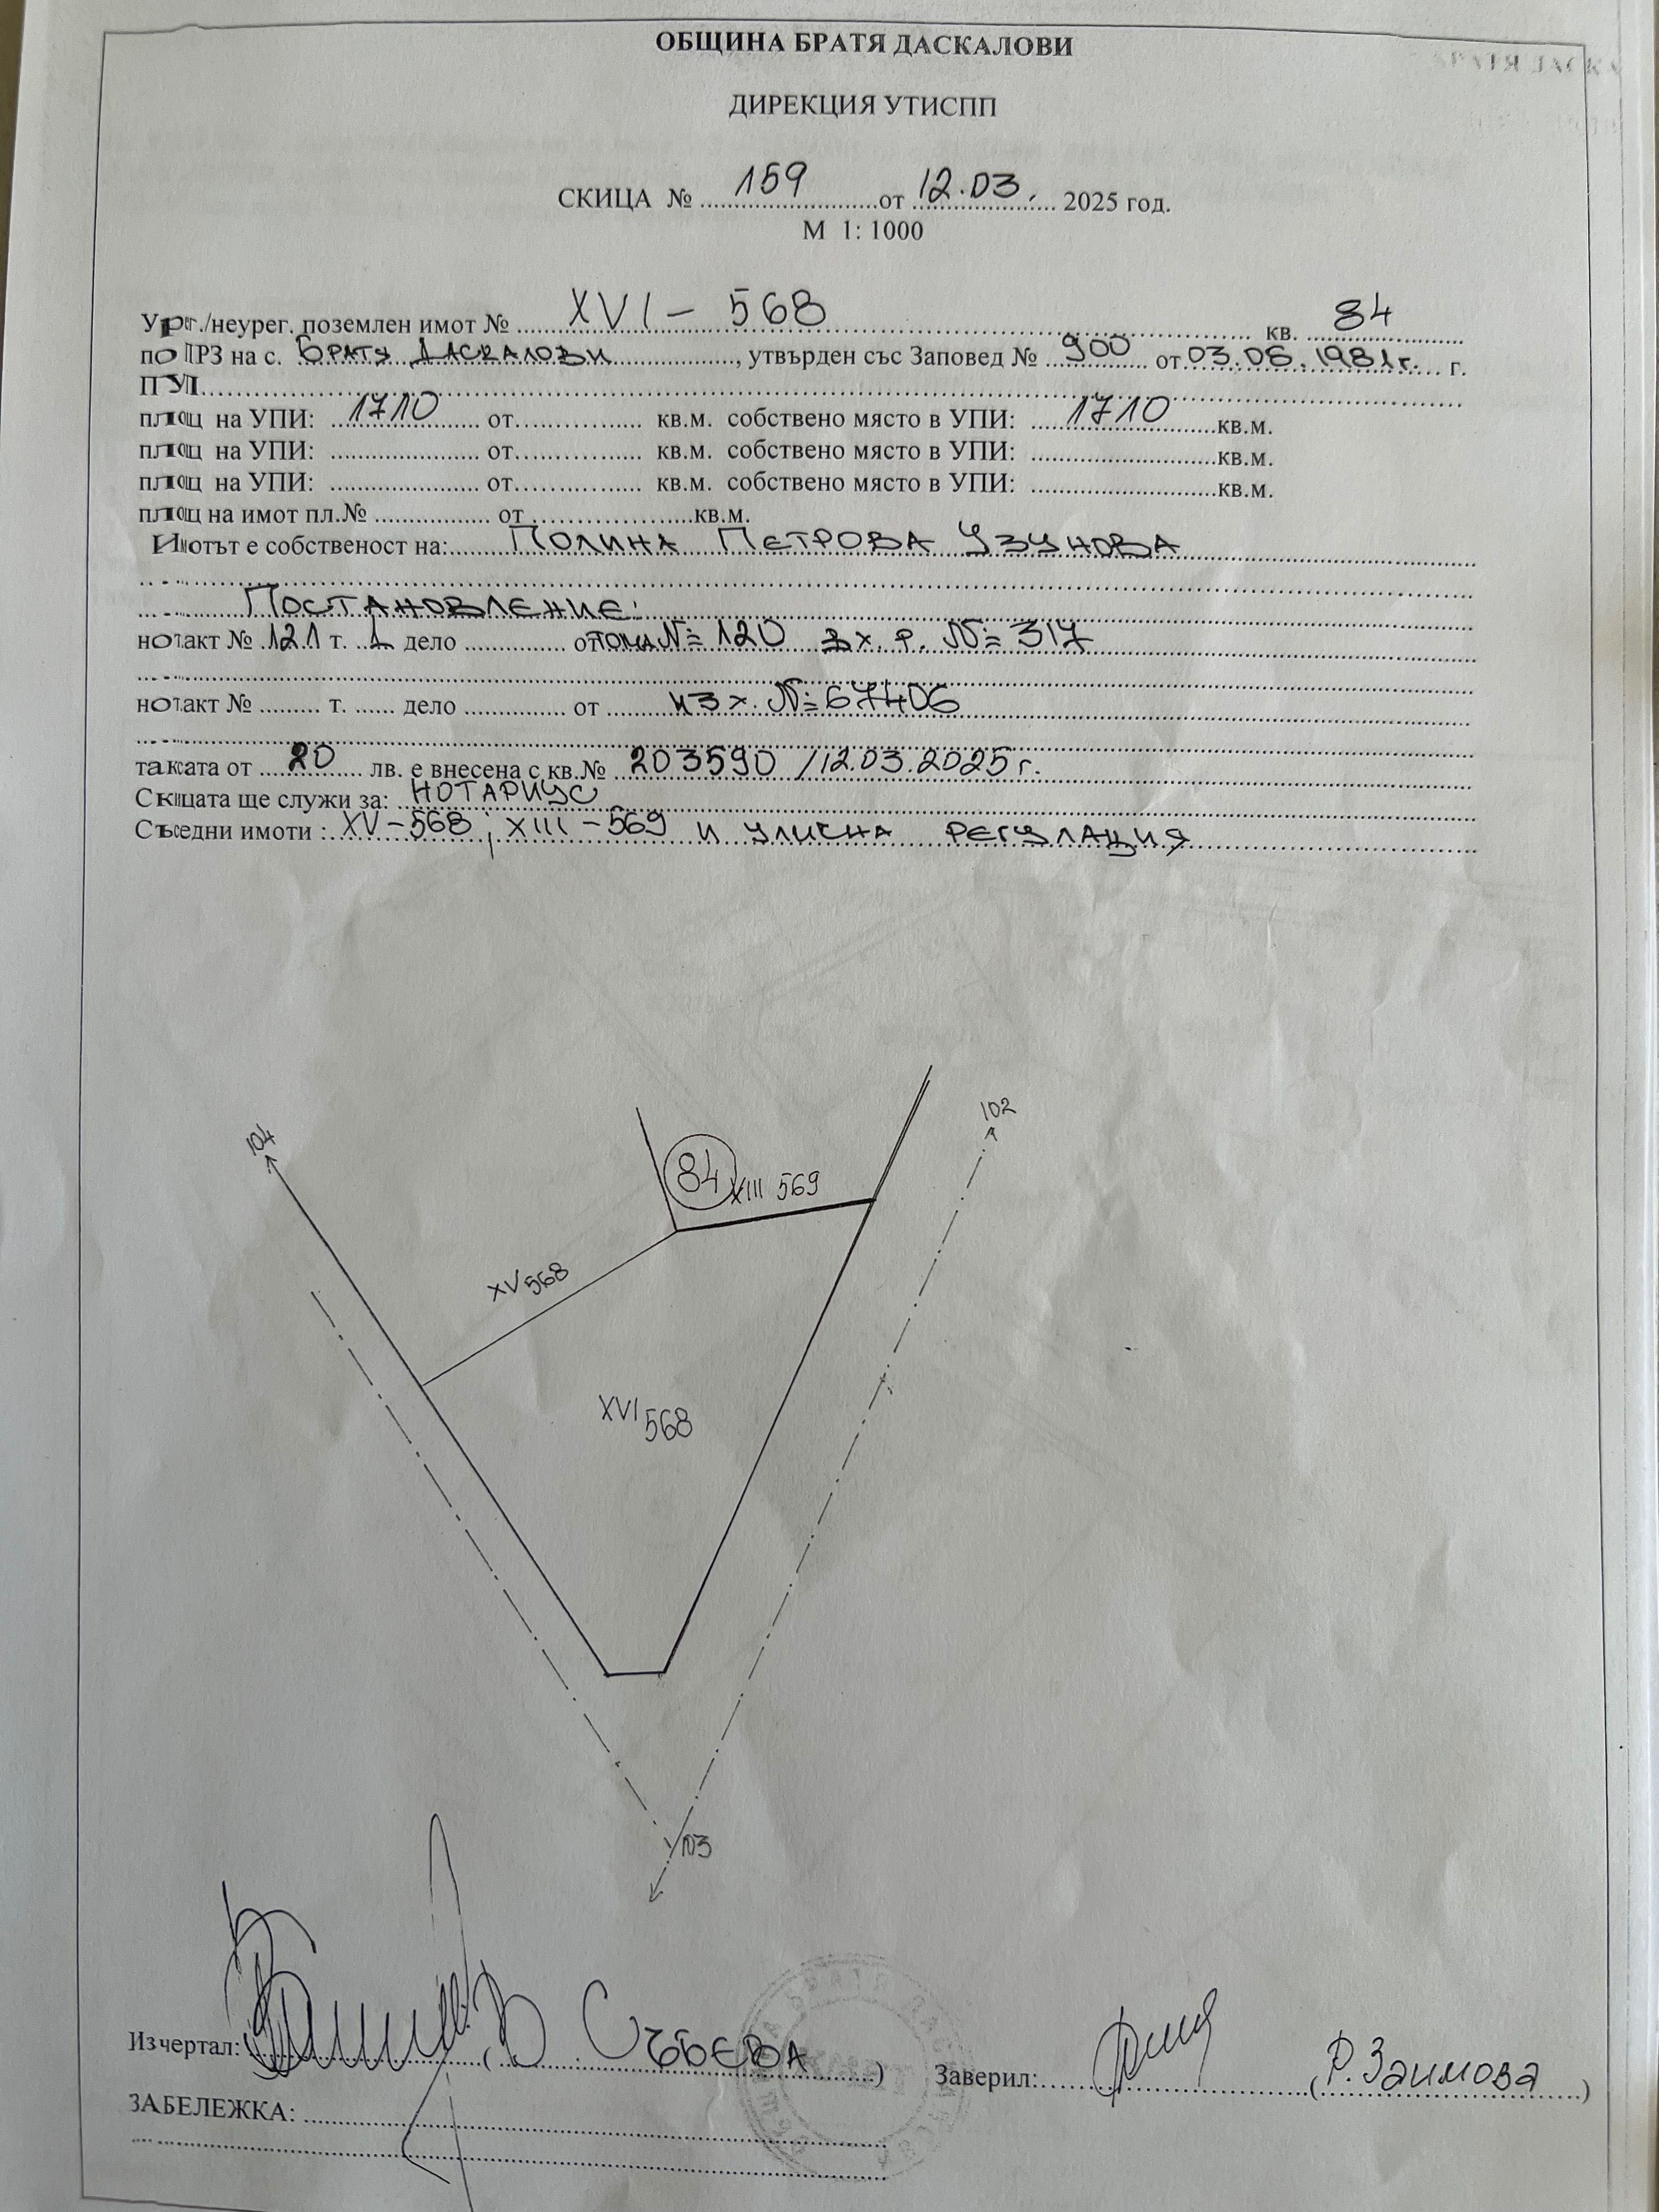 ОБЩИНА БРАТЯ ДАСКАЛОВИ
ДИРЕКЦИЯ УТИСПП
СКИЦА № 159 от 12.03. 2025 год.
М 1: 1000
Урег./неурег. поземлен имот № XVI – 568 кв. 84
по ПРЗ на с. Братя Даскалови, утвърден със Заповед № 900 от 03.06.1981г. г.
ПУП
площ на УПИ: 1710 от кв.м. собствено място в УПИ: 1710 кв.м.
площ на УПИ: от кв.м. собствено място в УПИ: кв.м.
площ на УПИ: от кв.м. собствено място в УПИ: кв.м.
площ на имот пл.№ от кв.м.
Имотът е собственост на: Полина Петрова Узунова
Постановление:
нот.акт № 121 т. 1 дело от № 120 вх. р. № 317
нот.акт № т. дело от изх. № 67406
таксата от 20 лв. е внесена с кв.№ 203590 /12.03.2025г.
Скицата ще служи за: НОТАРИУС
Съседни имоти : XV–568; XIII–569 и улична регулация
104
102
84
XIII 569
XV 568
XVI 568
103
Изчертал: (В. Събева) Заверил: (Р. Заимова)
ЗАБЕЛЕЖКА: